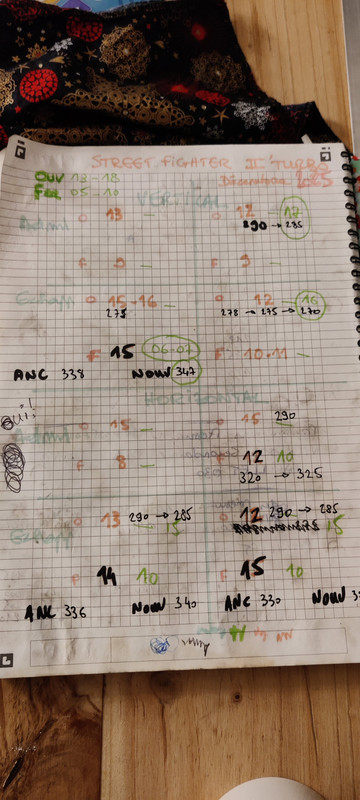 STREET FIGHTER II' TURBO
OUV 12-18
Fer 05-10
Dimensions 2025
VERTICAL
Admi O 13 — O 12 — 17
290 → 285
F 9 — F 9 —
Echapp O 15-16 — O 12 — 16
275 278 → 275 → 270
F 15 06-07 F 10-11 —
ANC 338 NOUV 347
HORIZONTAL
oui!
Admi O 15 — O 15 290
F 8 — F 12 10
320 → 325
Echapp O 13 290 → 285 15 O 12 290 → 285 15
F 14 10 F 15 10
ANC 336 NOUV 340 ANC 330 NOUV